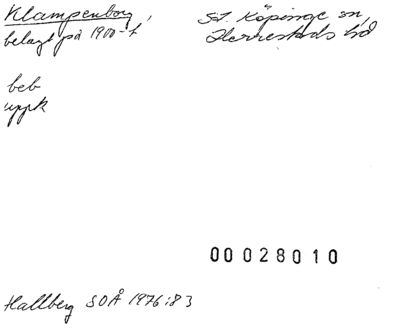 Klampenborg, St. Köpinge sn,
belagt på 1900-t Herrestads hd
beb
uppk
00 028010
Hallberg SOÅ 1976:83